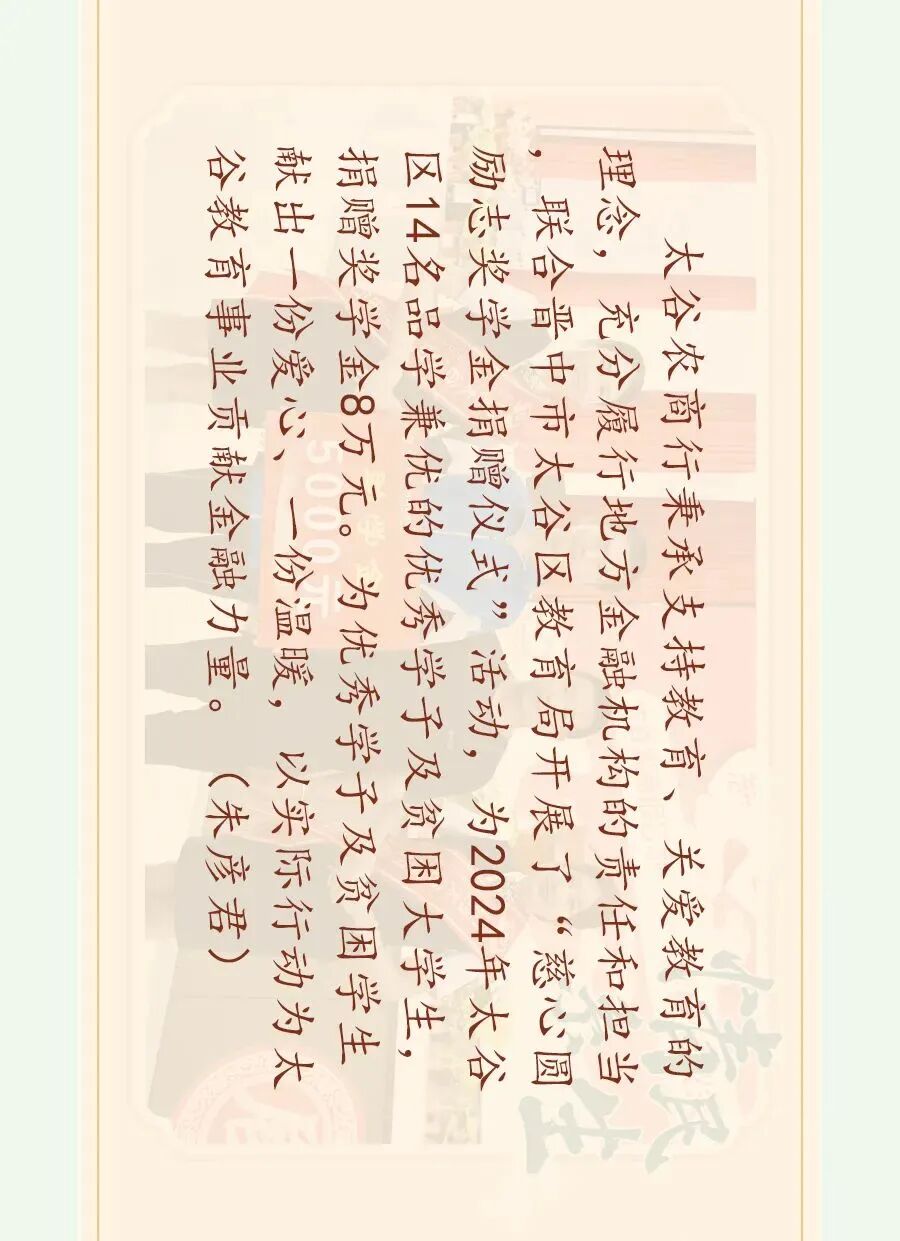 太谷农商行秉承支持教育、关爱教育的
理念，充分履行地方金融机构的责任和担当
，联合晋中市太谷区教育局开展了“慈心圆
励志奖学金捐赠仪式”活动，为2024年太谷
区14名品学兼优的优秀学子及贫困大学生，
捐赠奖学金8万元。为优秀学子及贫困学生
献出一份爱心、一份温暖，以实际行动为太
谷教育事业贡献金融力量。（朱彦君）
5000元